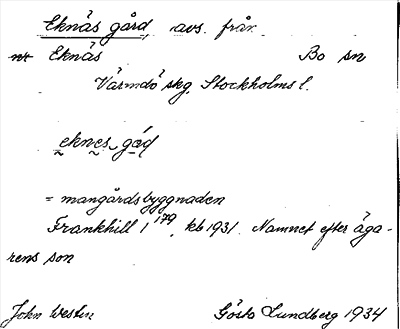 Eknäs gård, avs. från
nr Eknäs Bo sn
Värmdö skg, Stockholms l.
eknes gåd
= mangårdsbyggnaden
Frankhill 1 179, kb 1931. Namnet efter äga-
rens son
John Westin Gösta Lundberg 1934